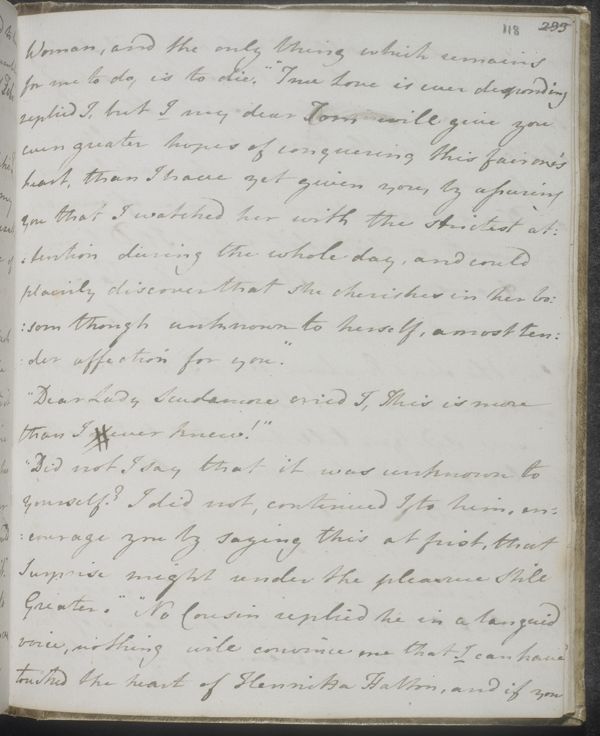 118 235
Woman, and the only thing which remains
for me to do, is to die." "True Love is ever desponding
replied I, but I my dear Tom will give you
even greater hopes of conquering this fair one's
heart, than I have yet given you, by assuring
you that I watched her with the strictest at:
:tention during the whole day, and could
plainly discover that she cherishes in her bo:
:som though unknown to herself, a most ten:
:der affection for you."
"Dear Lady Scudamore cried I, This is more
than I ever knew!"
"Did not I say that it was unknown to
yourself? I did not, continued I to him, en:
:courage you by saying this at first, that
Surprise might render the pleasure still
Greater." "No Cousin replied he in a languid
voice, nothing will convince me that I can have
touched the heart of Henrietta Halton, and if you